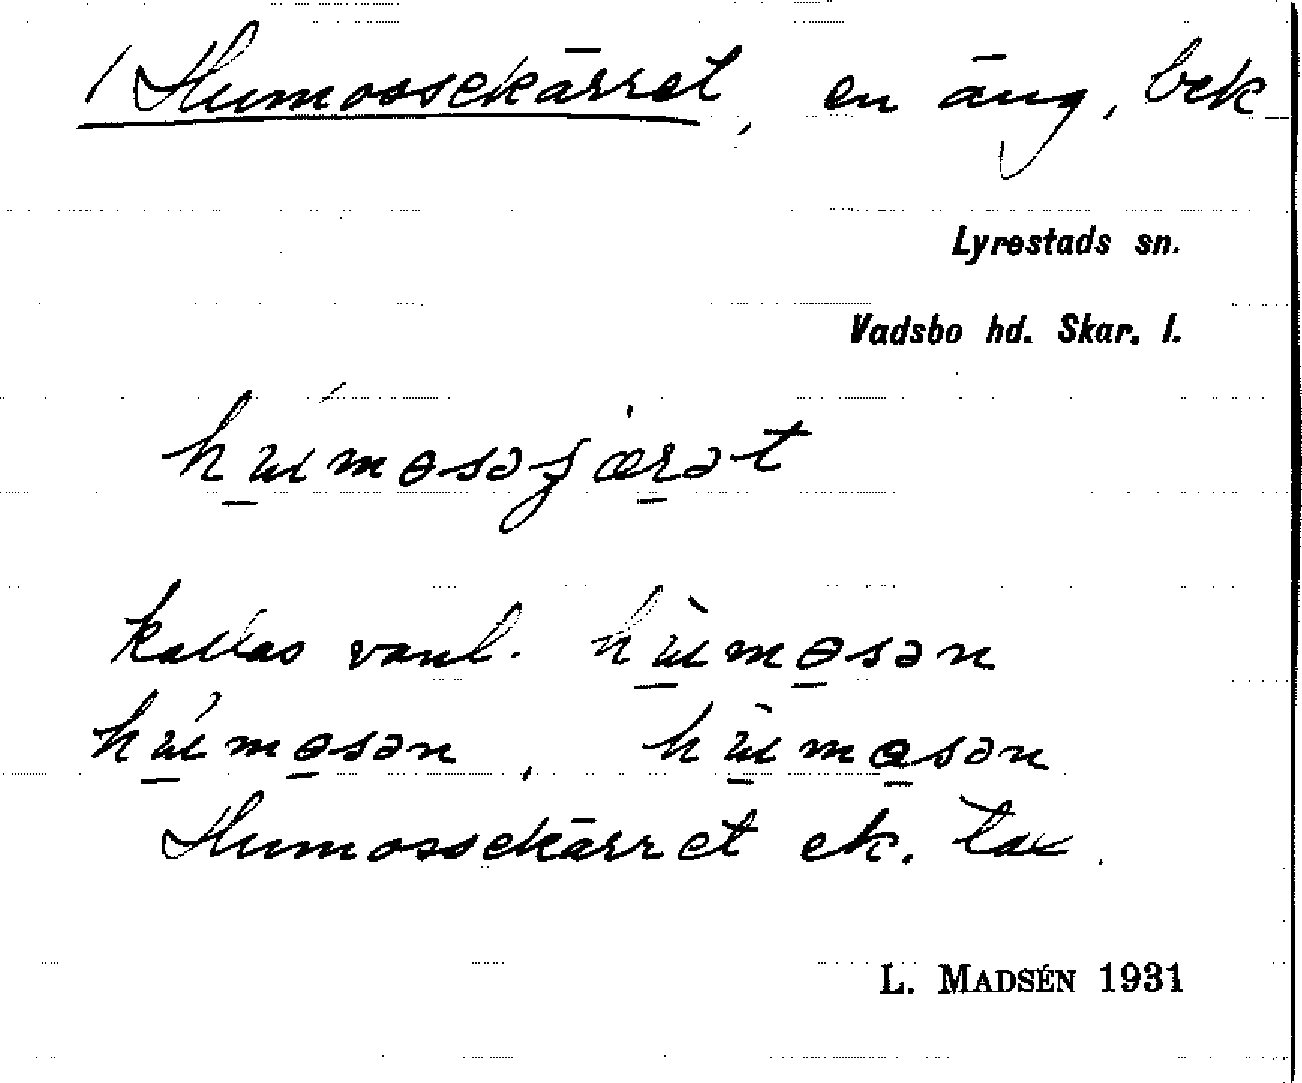 1 Humossekärret, en äng, bek
Lyrestads sn.
Vadsbo hd. Skar. l.
hu̱moseʃæ̱rət
kallas vanl. hu̱mɵ̱sən
hu̱mɵ̱sən, hu̱mɵ̱sən
Humossekärret ek. tax.
L. MADSÉN 1931